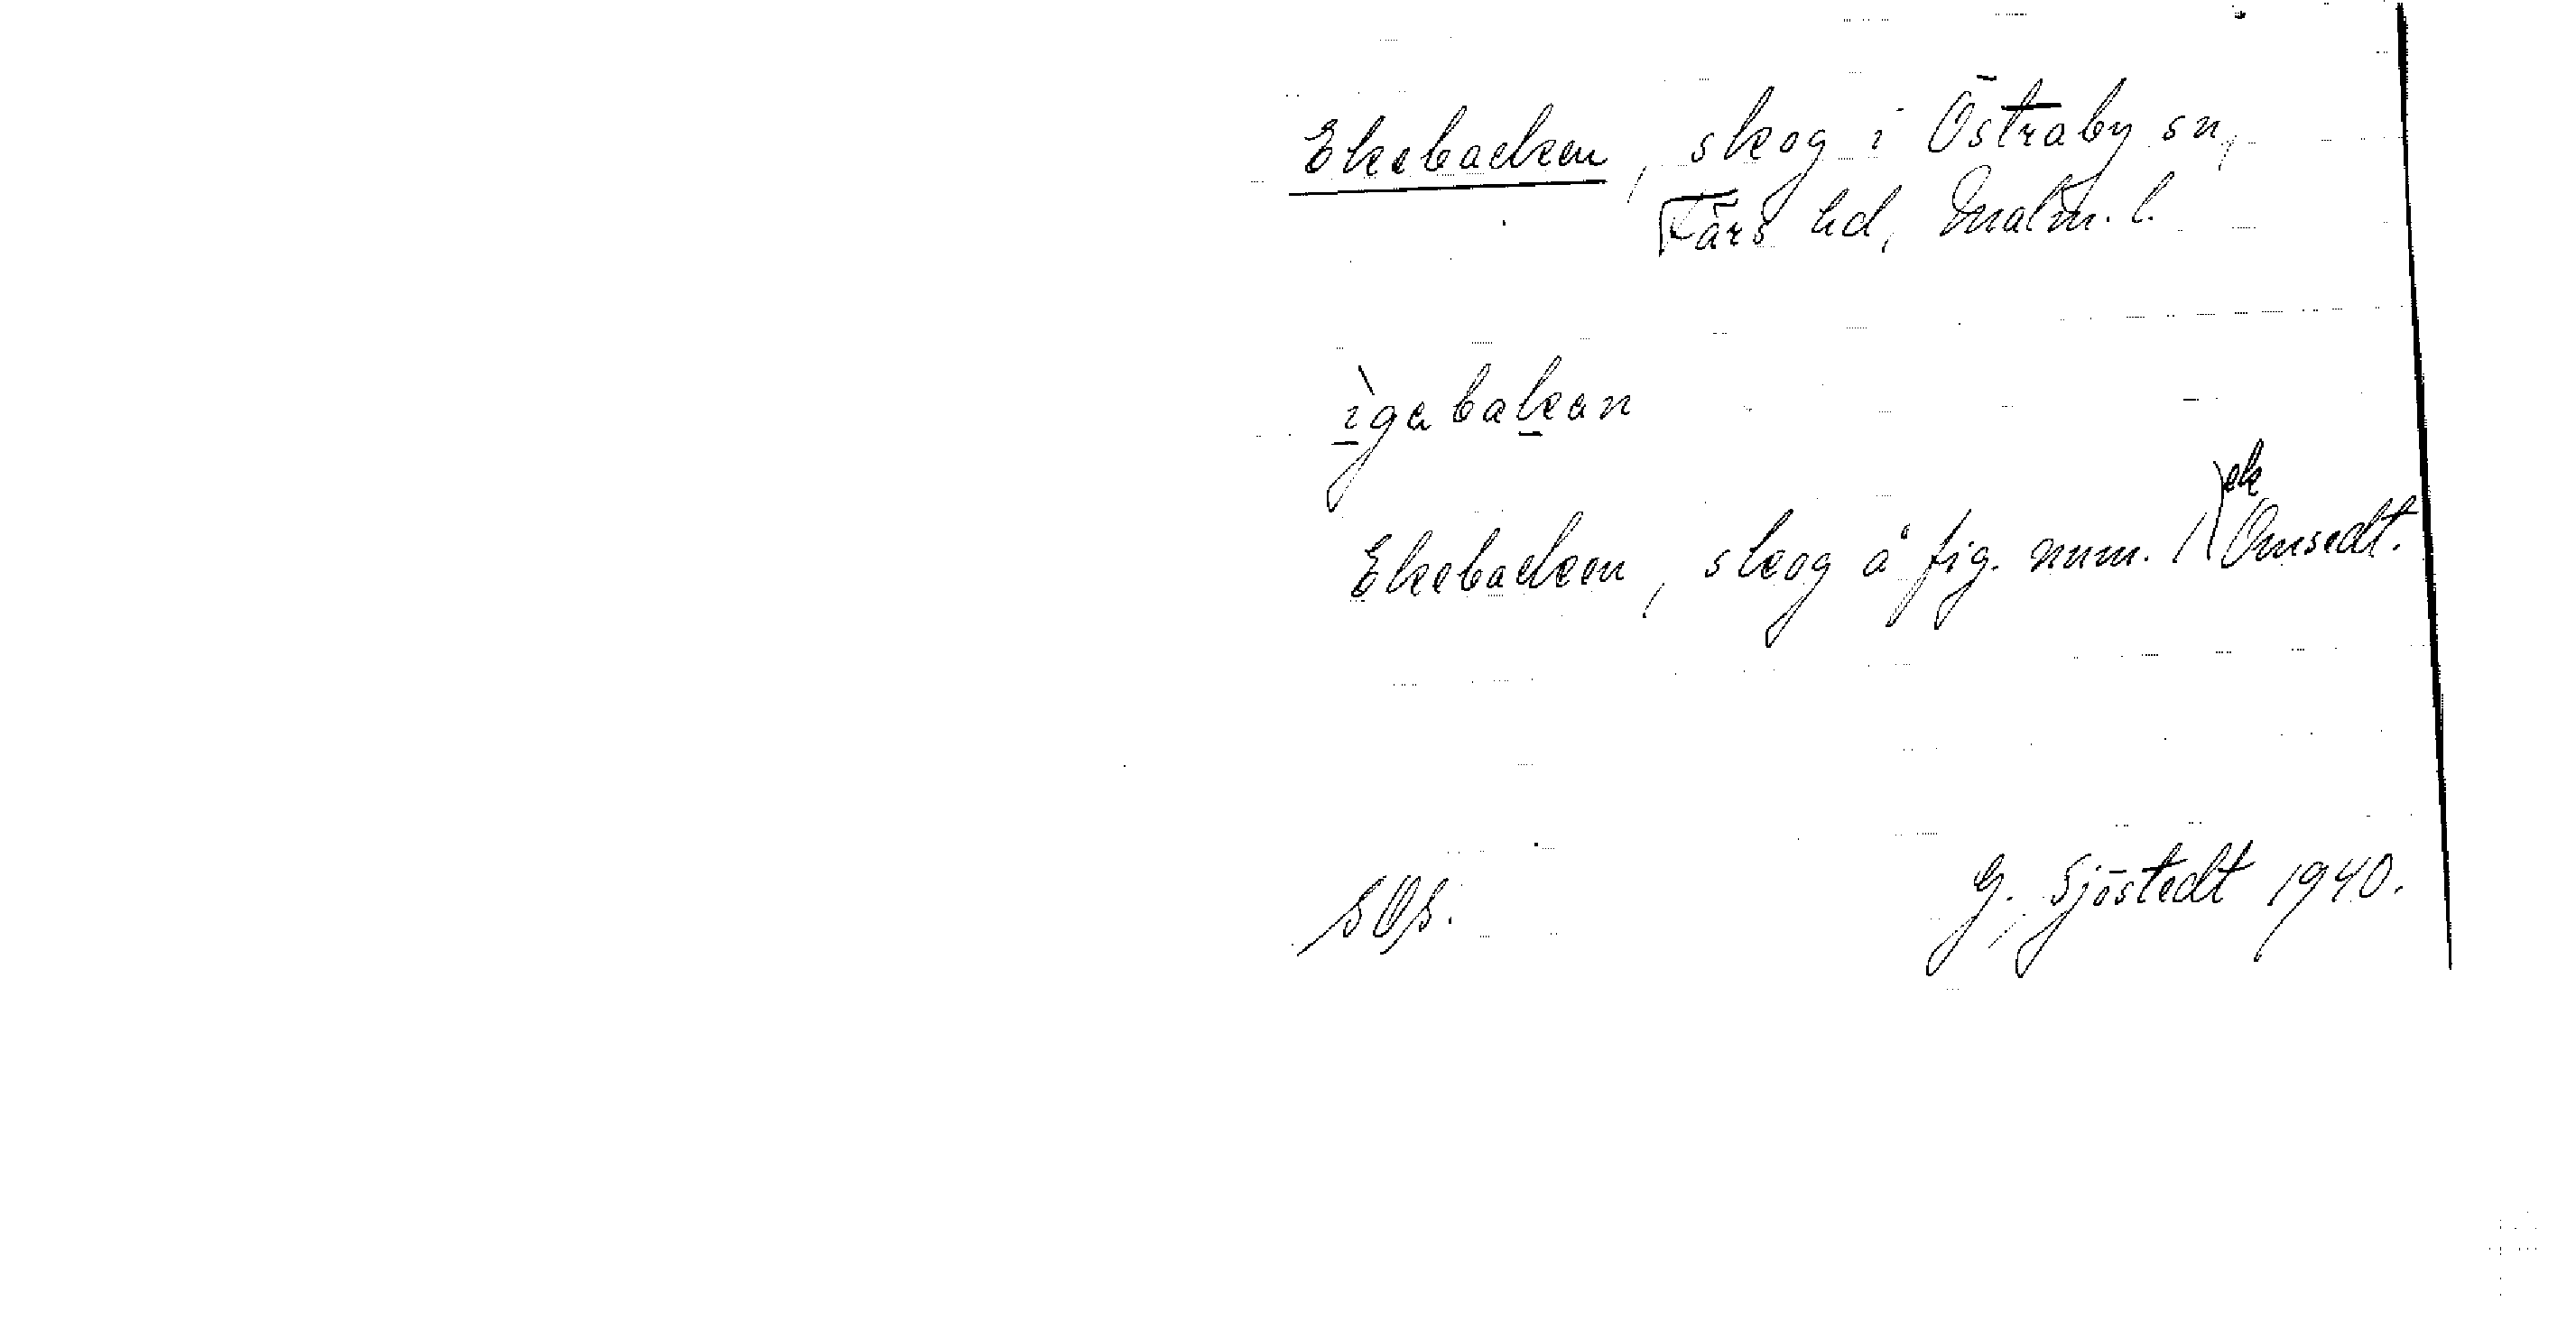 Ekebacken, skog i Östraby sn,
Färs hd, Malm. l.
ìgabakan
Ekebacken, skog å fig. num. 1 ek Omsedt.
G. Sjöstedt 1940.